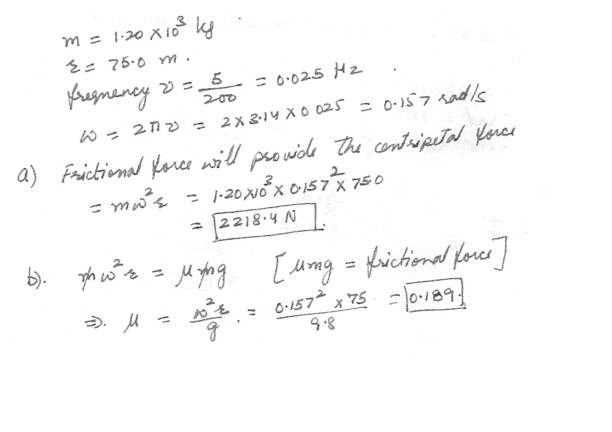 m = 1.20 × 10³ kg
r = 75.0 m.
frequency ν = 5/200 = 0.025 Hz
ω = 2πν = 2 × 3.14 × 0.025 = 0.157 rad/s
a) Frictional force will provide the centripetal force
= mω²r = 1.20 × 10³ × 0.157² × 75.0
= 2218.4 N
b). mω²r = μmg [μmg = frictional force]
⇒. μ = ω²r/g . = 0.157² × 75/9.8 = 0.189.